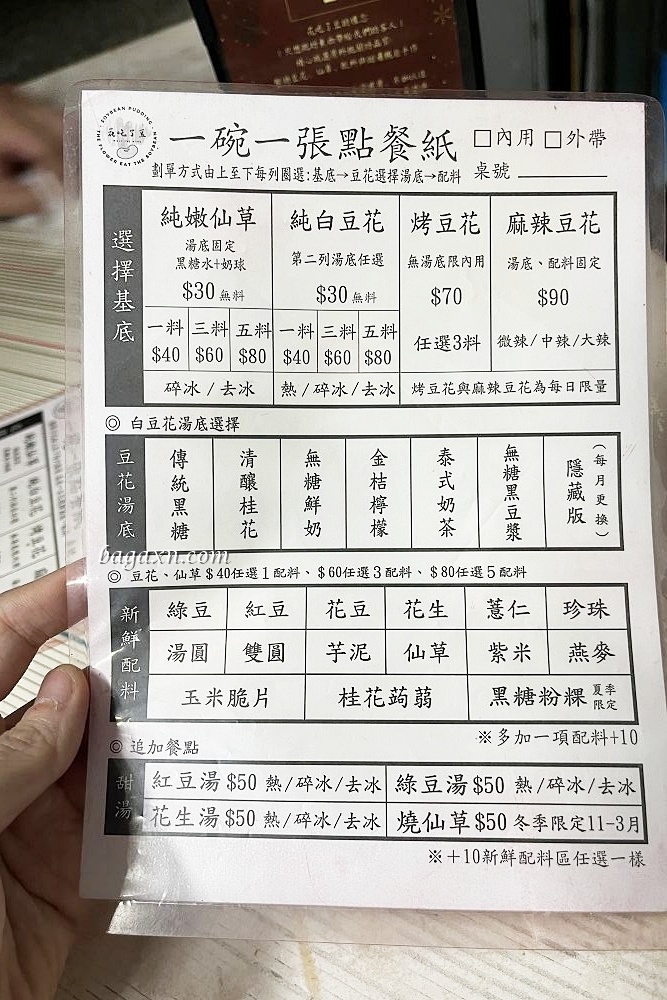 THE · SOYBEAN PUDDING
花吃了豆
THE FLOWER EAT THE SOYBEAN
一碗一張點餐紙 □內用 □外帶
劃單方式由上至下每列圈選:基底→豆花選擇湯底→配料 桌號
選擇基底
純嫩仙草
湯底固定
黑糖水+奶球
$30 無料
一料 三料 五料
$40 $60 $80
碎冰/去冰
純白豆花
第二列湯底任選
$30 無料
一料 三料 五料
$40 $60 $80
熱/碎冰/去冰
烤豆花
無湯底限內用
$70
任選3料
麻辣豆花
湯底、配料固定
$90
微辣/中辣/大辣
烤豆花與麻辣豆花為每日限量
◎ 白豆花湯底選擇
豆花湯底
傳統黑糖
清釀桂花
無糖鮮奶
金桔檸檬
泰式奶茶
無糖黑豆漿
隱藏版
(每月更換)
bagaxn.com
◎ 豆花、仙草$40任選1配料、$60任選3配料、$80任選5配料
新鮮配料
綠豆 紅豆 花豆 花生 薏仁 珍珠
湯圓 雙圓 芋泥 仙草 紫米 燕麥
玉米脆片 桂花蒟蒻 黑糖粉粿 夏季限定
※多加一項配料+10
◎ 追加餐點
甜湯
紅豆湯$50 熱/碎冰/去冰 綠豆湯$50 熱/碎冰/去冰
花生湯$50 熱/碎冰/去冰 燒仙草$50 冬季限定11-3月
※+10新鮮配料區任選一樣